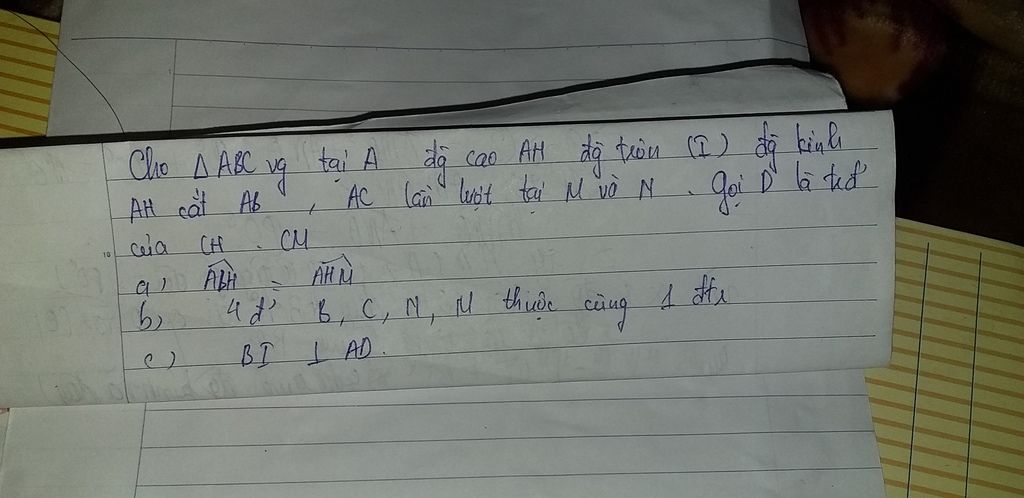 Cho △ ABC vg tại A đg cao AH đg tròn (I) đg kính
AH cắt AB , AC lần lượt tại M và N . Gọi D là tđ'
của CH . CM
a) ABH = AHM
b) 4 đ' B, C, N, M thuộc cùng 1 đtr
c) BI ⊥ AD.